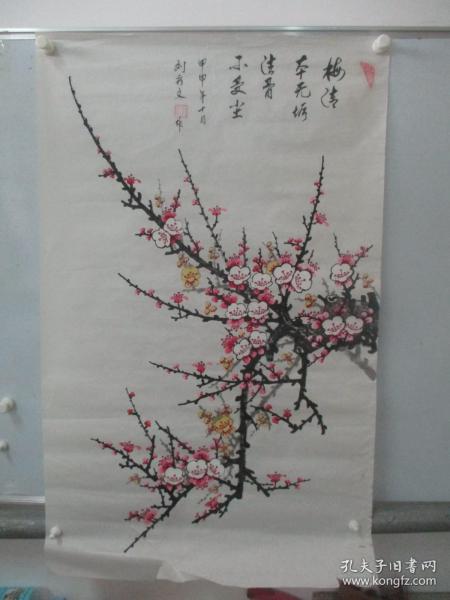 梅清
本无垢
洁骨
不受尘
甲申年十月
刘秀文 作
孔夫子旧书网
www.kongfz.com